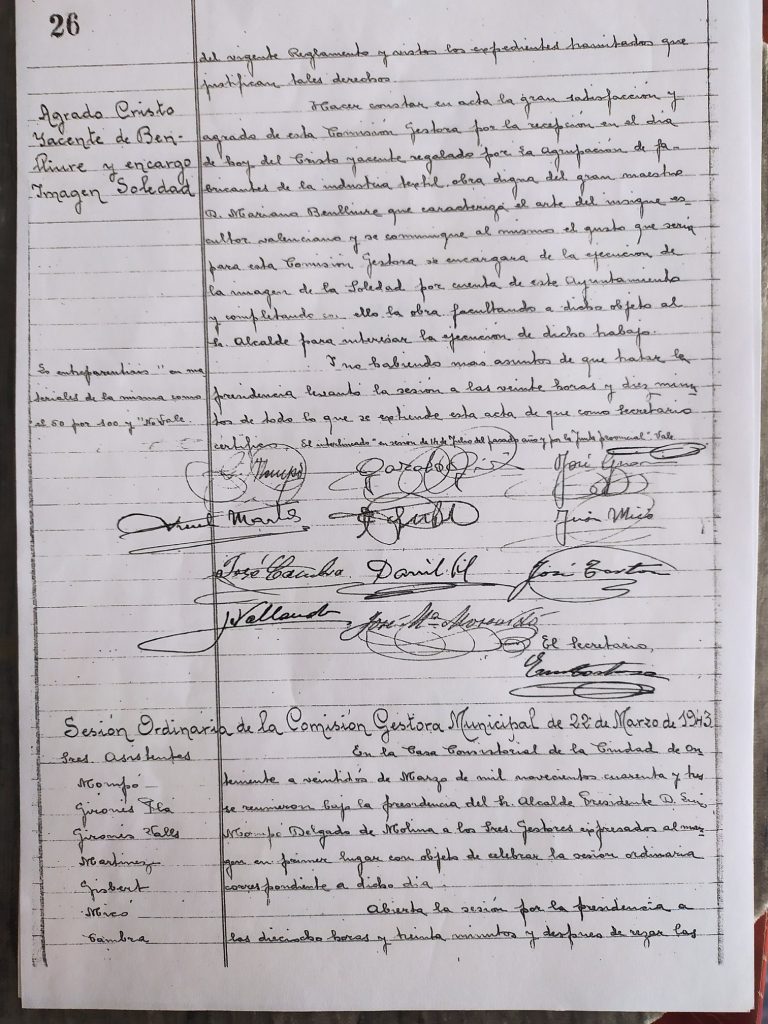 26
del vigente Reglamento y vistos los expedientes tramitados que
justifican tales derechos.
Agrado Cristo
Yacente de Ben-
lliure y encargo
Imagen Soledad
Hacer constar en acta la gran satisfacción y
agrado de esta Comisión Gestora por la recepción en el dia
de hoy del Cristo yacente regalado por la Agrupación de fa-
bricantes de la industria textil, obra digna del gran maestro
D. Mariano Benlliure que caracteriza el arte del insigne es-
cultor valenciano y se comunique al mismo el gusto que seria
para esta Comisión Gestora se encargara de la ejecucion de
la imagen de la Soledad por cuenta de este Ayuntamiento
y completando con ello la obra facultando a dicho objeto al
Sr. Alcalde para interesar la ejecución de dicho trabajo.
Lo entreparentisis "en ma
teriales de la misma como
el 50 por 100 y "No Vale.
Y no habiendo mas asuntos de que tratar la
presidencia levanto la sesión a las veinte horas y diez minu-
tos de todo lo que se extiende esta acta de que como Secretario
certifico. El interlineado "en sesion de 14 de Julio del pasado año y por la Junta provincial" Vale
Mompó José
Juan Micó
José Cambra Daniel José
José Mª
El Secretario,
Sesión Ordinaria de la Comisión Gestora Municipal de 22 de Marzo de 1943
Sres. Asistentes
Mompó
Gironés Pla
Gironés Valls
Martinez
Gisbert
Micó
Cambra
En la Casa Consistorial de la Ciudad de On
teniente a veintidós de Marzo de mil novecientos cuarenta y tres
se reunieron bajo la presidencia del Sr. Alcalde Presidente D. Luis
Mompó Delgado de Molina a los Sres. Gestores expresados al mar-
gen en primer lugar con objeto de celebrar la sesión ordinaria
correspondiente a dicho dia.
Abierta la sesión por la presidencia a
las dieciocho horas y treinta minutos y despues de rezar las